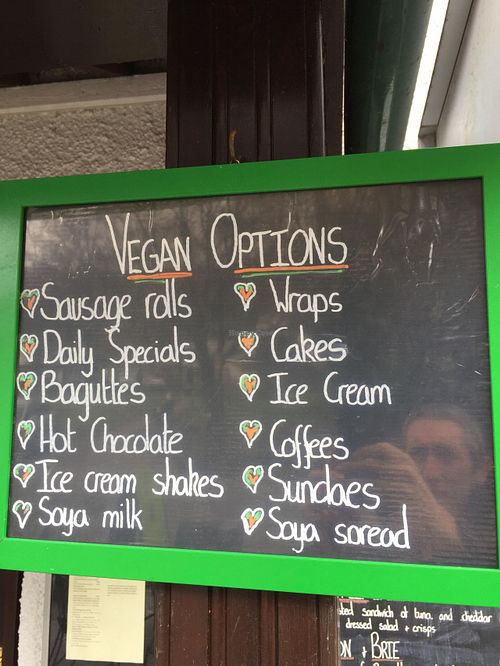 VEGAN OPTIONS
Sausage rolls
Daily Specials
Baguttes
Hot Chocolate
Ice cream shakes
Soya milk
Wraps
Cakes
Ice Cream
Coffees
Sundaes
Soya soread
sandwich of tuna and cheddar
dressed salad + crisps
& BRIE